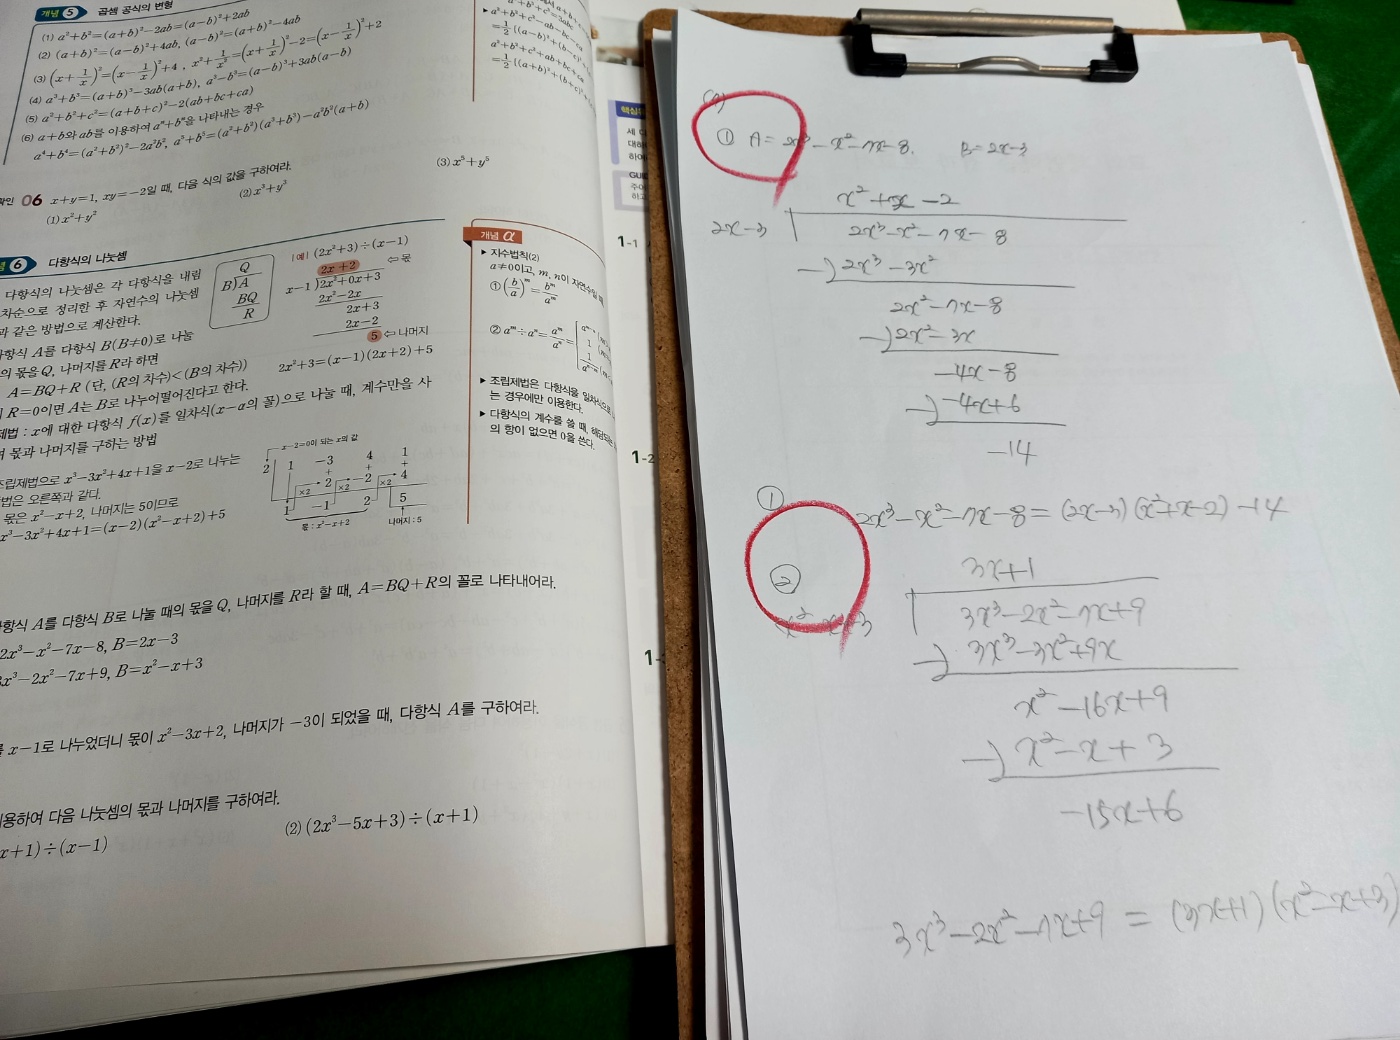 개념 5 곱셈 공식의 변형
(1) a²+b²=(a+b)²-2ab=(a-b)²+2ab
(2) (a+b)²=(a-b)²+4ab, (a-b)²=(a+b)²-4ab
(3) (x+1/x)²=(x-1/x)²+4, x²+1/x²=(x+1/x)²-2=(x-1/x)²+2
(4) a³+b³=(a+b)³-3ab(a+b), a³-b³=(a-b)³+3ab(a-b)
(5) a²+b²+c²=(a+b+c)²-2(ab+bc+ca)
(6) a+b와 ab를 이용하여 aⁿ+bⁿ을 나타내는 경우
a⁴+b⁴=(a²+b²)²-2a²b², a⁵+b⁵=(a²+b²)(a³+b³)-a²b²(a+b)
확인 06 x+y=1, xy=-2일 때, 다음 식의 값을 구하여라.
(1) x²+y² (2) x³+y³ (3) x⁵+y⁵
6 다항식의 나눗셈
다항식의 나눗셈은 각 다항식을 내림
차순으로 정리한 후 자연수의 나눗셈
과 같은 방법으로 계산한다.
Q
B)A
BQ
R
|예| (2x²+3)÷(x-1)
2x+2 ⇐몫
x-1)2x²+0x+3
2x²-2x
2x+3
2x-2
5 ⇐나머지
다항식 A를 다항식 B(B≠0)로 나눌
의 몫을 Q, 나머지를 R라 하면
A=BQ+R (단, (R의 차수)<(B의 차수))
2x²+3=(x-1)(2x+2)+5
R=0이면 A는 B로 나누어떨어진다고 한다.
제법 : x에 대한 다항식 f(x)를 일차식(x-a의 꼴)으로 나눌 때, 계수만을 사
몫과 나머지를 구하는 방법
조립제법으로 x³-3x²+4x+1을 x-2로 나누는
법은 오른쪽과 같다.
몫은 x²-x+2, 나머지는 5이므로
x³-3x²+4x+1=(x-2)(x²-x+2)+5
x-2=0이 되는 x의 값
2 1 -3 4 1
+ + +
2 -2 4
×2 ×2 ×2
1 -1 2 5
몫 : x²-x+2 나머지 : 5
개념 α
▶ 지수법칙(2)
a≠0이고, m, n이 자연수일 때
① (b/a)ᵐ=bᵐ/aᵐ
② aᵐ÷aⁿ=aᵐ/aⁿ=
▶ 조립제법은 다항식을 일차식으로
는 경우에만 이용한다.
▶ 다항식의 계수를 쓸 때, 해당되는
의 항이 없으면 0을 쓴다.
다항식 A를 다항식 B로 나눌 때의 몫을 Q, 나머지를 R라 할 때, A=BQ+R의 꼴로 나타내어라.
2x³-x²-7x-8, B=2x-3
3x³-2x²-7x+9, B=x²-x+3
를 x-1로 나누었더니 몫이 x²-3x+2, 나머지가 -3이 되었을 때, 다항식 A를 구하여라.
이용하여 다음 나눗셈의 몫과 나머지를 구하여라.
x+1)÷(x-1) (2) (2x³-5x+3)÷(x+1)
1-1
1-2
① A=2x³-x²-7x-8, B=2x-3
x²+x-2
2x-3 2x³-x²-7x-8
-) 2x³-3x²
2x²-7x-8
-) 2x²-3x
-4x-8
-) -4x+6
-14
①
2x³-x²-7x-8=(2x-3)(x²+x-2)-14
②
3x+1
x²-x+3 3x³-2x²-7x+9
-) 3x³-3x²+9x
x²-16x+9
-) x²-x+3
-15x+6
3x³-2x²-7x+9=(3x+1)(x²-x+3)